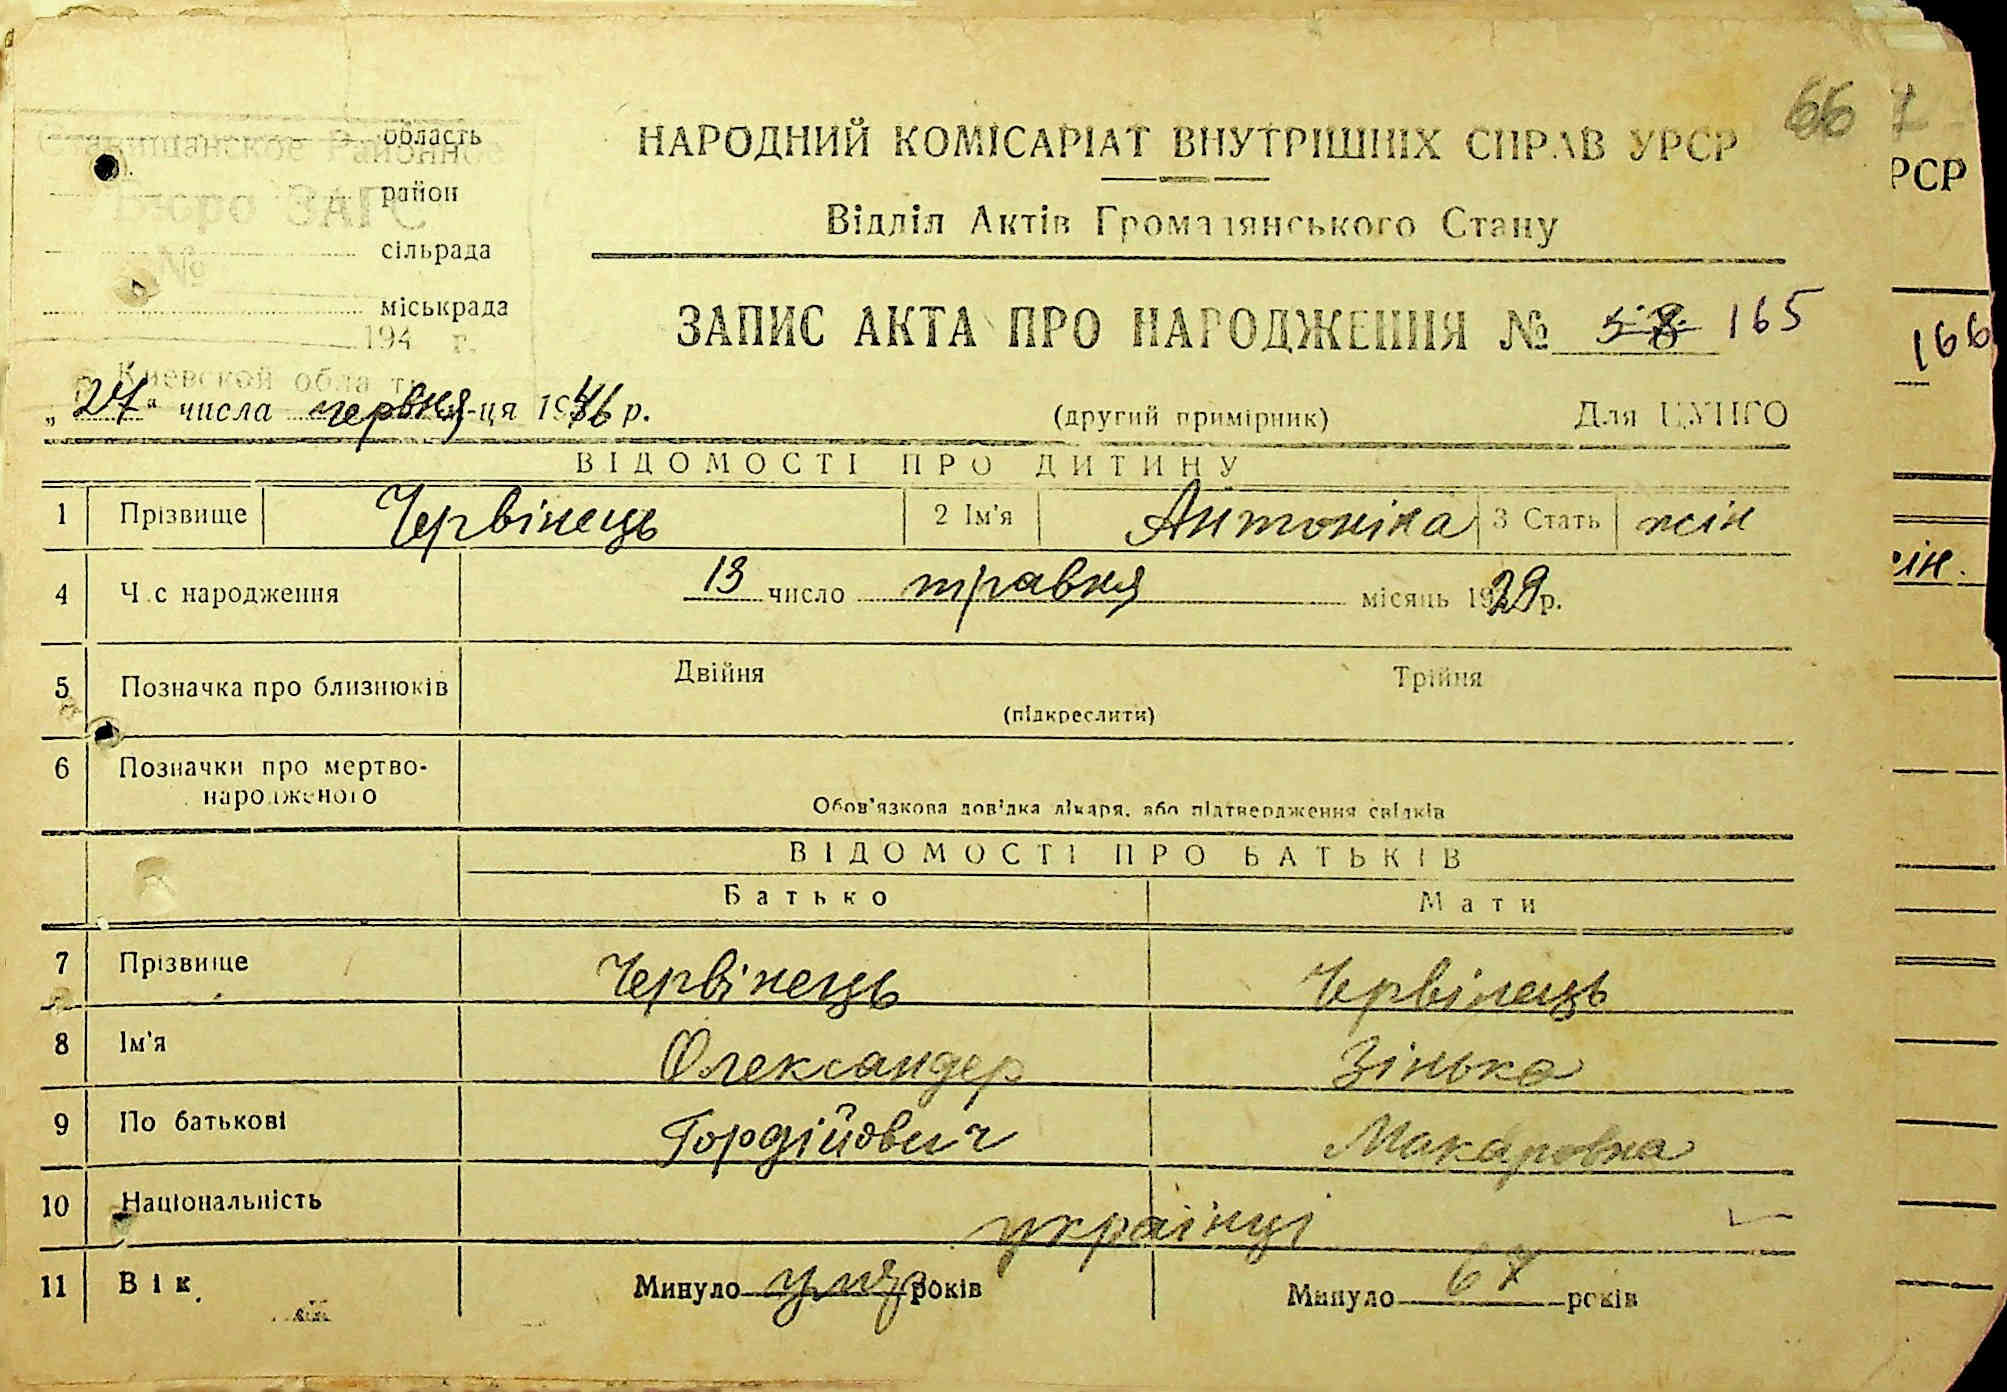 66 7
область
Ставищанское Районное
район
Бюро ЗАГС
сільрада
№
міськрада
194 г.
Киевской
НАРОДНИЙ КОМІСАРІАТ ВНУТРІШНІХ СПРАВ УРСР
РСР
Відділ Актів Громадянського Стану
ЗАПИС АКТА ПРО НАРОДЖЕННЯ № 58 165
166
„27“ числа червня м-ця 1946 р.
(другий примірник) Для ЦУНГО
ВІДОМОСТІ ПРО ДИТИНУ
1 Прізвище Червінець 2 Ім'я Антоніна 3 Стать жін
ін.
4 Час народження 13 число травня місяць 1929 р.
5 Позначка про близнюків Двійня Трійня
(підкреслити)
6 Позначки про мертво-
народженого
Обов'язкова довідка лікаря, або підтвердження свідків
ВІДОМОСТІ ПРО БАТЬКІВ
Батько Мати
7 Прізвище Червінець Червінець
8 Ім'я Олександер Зінька
9 По батькові Гордійович Макаровна
10 Національність українці
11 Вік Минуло умер років Минуло 67 років